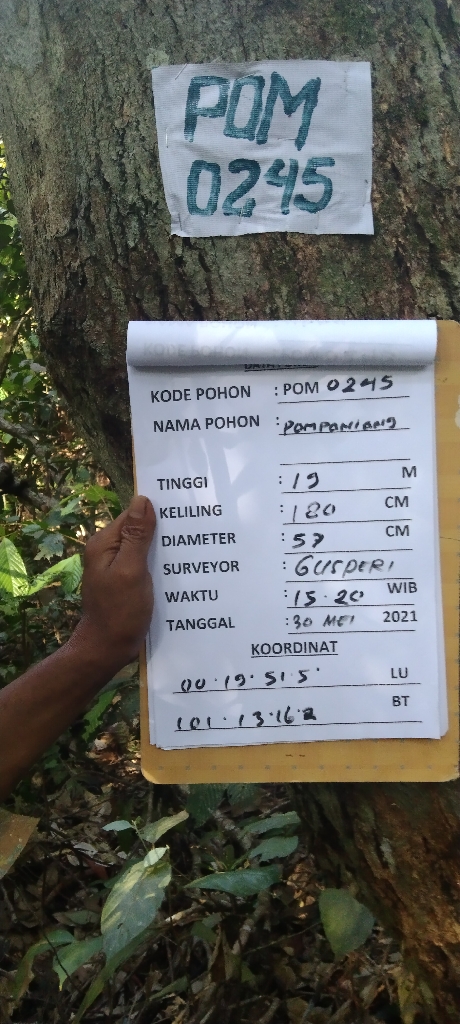 POM
0245
KODE POHON : POM 0245
NAMA POHON : POMPANIANG
TINGGI : 19 M
KELILING : 180 CM
DIAMETER : 57 CM
SURVEYOR : GUSPERI
WAKTU : 15.20 WIB
TANGGAL : 30 MEI 2021
KOORDINAT
00.19.51.5 LU
101.13.16.2 BT